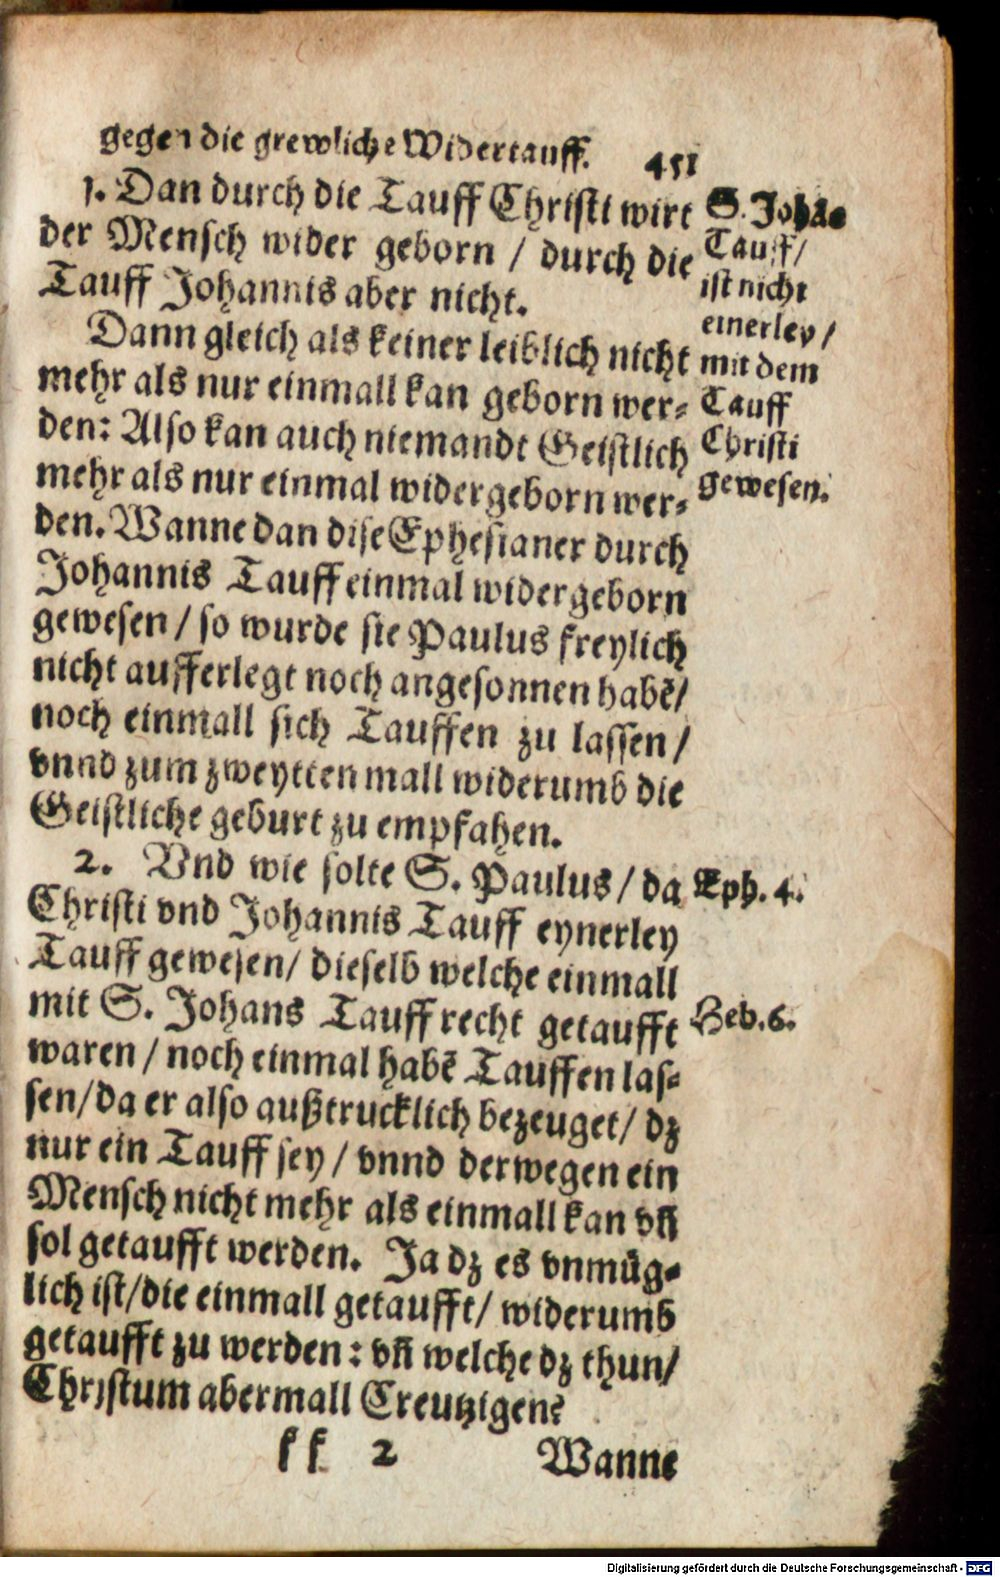 gegen die grewliche Widertauff. 451
1. Dan durch die Tauff Christi wirt
der Mensch wider geborn / durch die
Tauff Johannis aber nicht.
Dann gleich als keiner leiblich nicht
mehr als nur einmall kan geborn wer⸗
den: Also kan auch niemandt Geistlich
mehr als nur einmal widergeborn wer⸗
den. Wanne dan dise Ephesianer durch
Johannis Tauff einmal widergeborn
gewesen / so wurde sie Paulus freylich
nicht aufferlegt noch angesonnen habē/
noch einmall sich Tauffen zu lassen /
vnnd zum zweytten mall widerumb die
Geistliche geburt zu empfahen.
2. Vnd wie solte S. Paulus / da
Christi vnd Johannis Tauff eynerley
Tauff gewesen / dieselb welche einmall
mit S. Johans Tauff recht getaufft
waren / noch einmal habē Tauffen las⸗
sen / da er also außtrucklich bezeuget / dz
nur ein Tauff sey / vnnd derwegen ein
Mensch nicht mehr als einmall kan vñ
sol getaufft werden. Ja dz es vnmüg⸗
lich ist / die einmall getaufft / widerumb
getaufft zu werden: vñ welche dz thun /
Christum abermall Creutzigen?
kk 2 Wanne
S. Johā⸗
Tauff /
ist nicht
einerley /
mit dem
Tauff
Christi
gewesen.
Eph. 4.
Heb. 6.
Digitalisierung gefördert durch die Deutsche Forschungsgemeinschaft - DFG